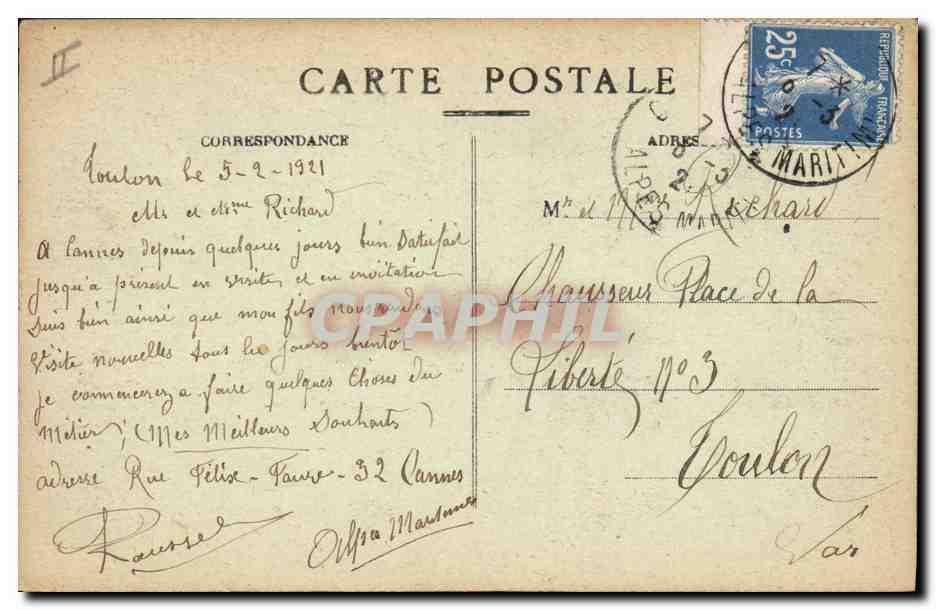 II
CARTE POSTALE
CORRESPONDANCE
Toulon le 5-2-1921
Mr et Mme Richard
A Cannes depuis quelques jours bien Satisfait
jusqu'à présent en visite et en invitation
suis bien ainsi que mon fils nous rendons
Visite nouvelles tous les jours bientôt
je commencerez a faire quelques Choses du
Métier, (Mes Meilleurs Souhaits)
adresse Rue Félix-Faure-32 Cannes
Roussel
Alpes Maritimes
ADRES
Mr et Richard
Chausseur Place de la
Liberté No 3
Toulon
Var
25c
REPUBLIQUE FRANÇAISE
POSTES
7 * -3
ALPES MARITIM
7 -3
2
ALPES
MARIT
CPAPHIL